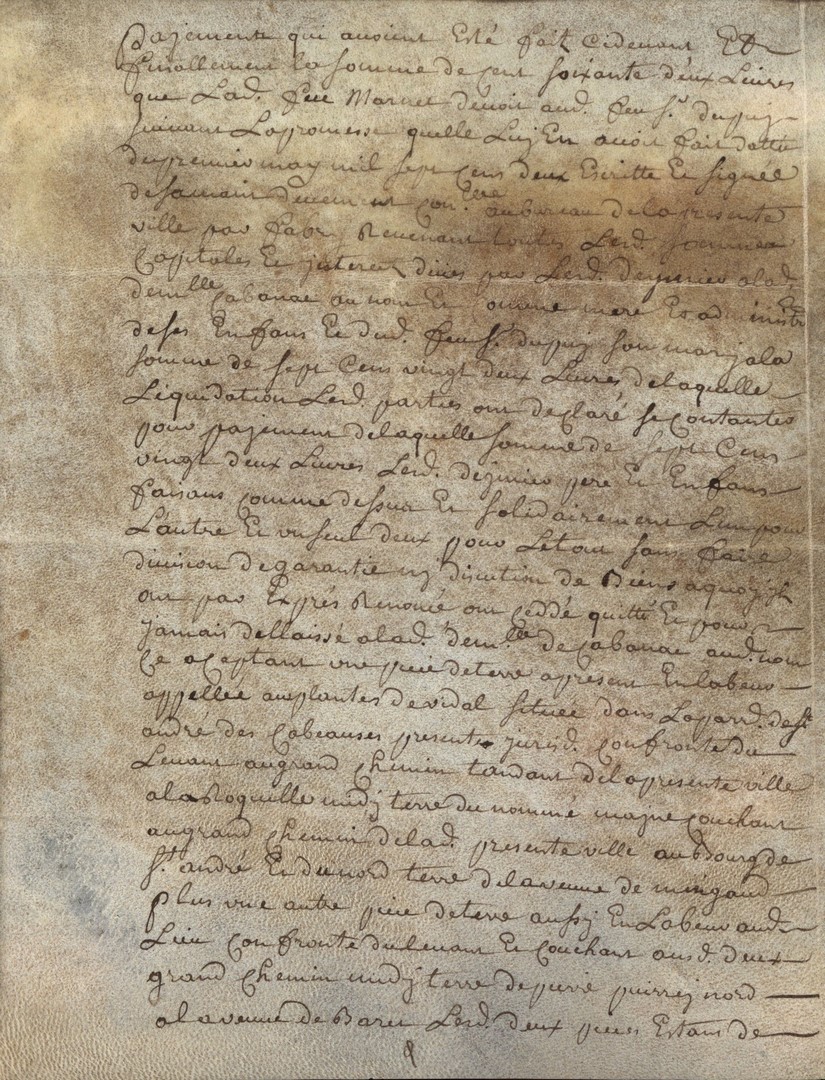 Pajements qui avoient Esté fait cidevant Et
finallement la somme de cent soixante deux Livres
que Lad. feue Marnet devoit aud. feu sr. dupuy
suivant La promesse quelle Luy En avoit fait datte
du premier may mil sept cens deux Escritte Et signée
de sa main devement con.lee au bureau de la presente
ville par fabry Revenant toutes Lesd. sommes
Capitales Et interets par Lesd. a lad.
demlle Cabanac au nom Et comme mere Et administre
de ses Enfans Et dud. feu sr. dupuy son mary a la
somme de sept Cens vingt deux Livres de laquelle
Liquidation Lesd. parties ont declaré se contanter
pour pajement de laquelle somme de sept Cens
vingt deux Livres Lesd. pere Et Enfans
faisans comme dessus Et solidairement L'un pour
L'autre Et un seul deux pour Le tout sans faire
division de garantie ny discution de Biens a quoy ils
ont par Exprés Renoncé ont ceddé quitté Et pour
jamais dellaissé a lad. demlle de Cabanac aud. nom
Ce aceptant une piece de terre a present En labour
appellée aux plantes de vidal située dans La parr. de st
andré des Cabeauses presente jurisd. confronte du
Levant au grand chemin tandant de la presente ville
a la Roquelle midy terre du nommé majne couchant
au grand chemin de lad. presente ville au Bourg de
st. andré Et du nord terre de la veuve de mingaud
Plus une autre piece de terre aussy En Labour aud.
Lieu confronte du levant Et couchant ausd. deux
grand chemin midy terre de pierre nord
a la veuve de Baret Lesd. deux pieces Estans de